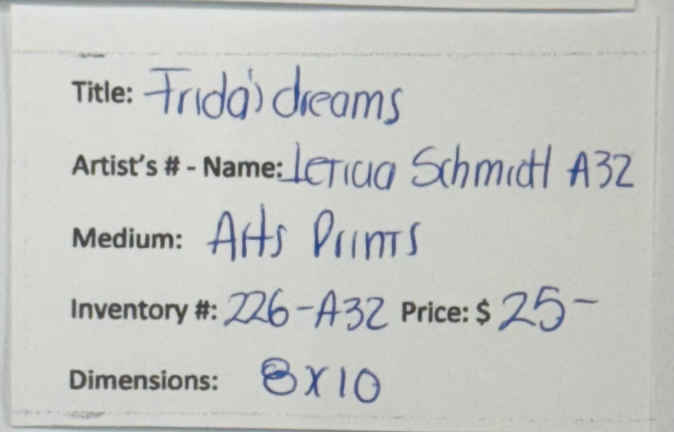 Title: Frida's dreams
Artist's # - Name: Leticia Schmidt A32
Medium: Arts Prints
Inventory #: 226-A32 Price: $ 25-
Dimensions: 8x10